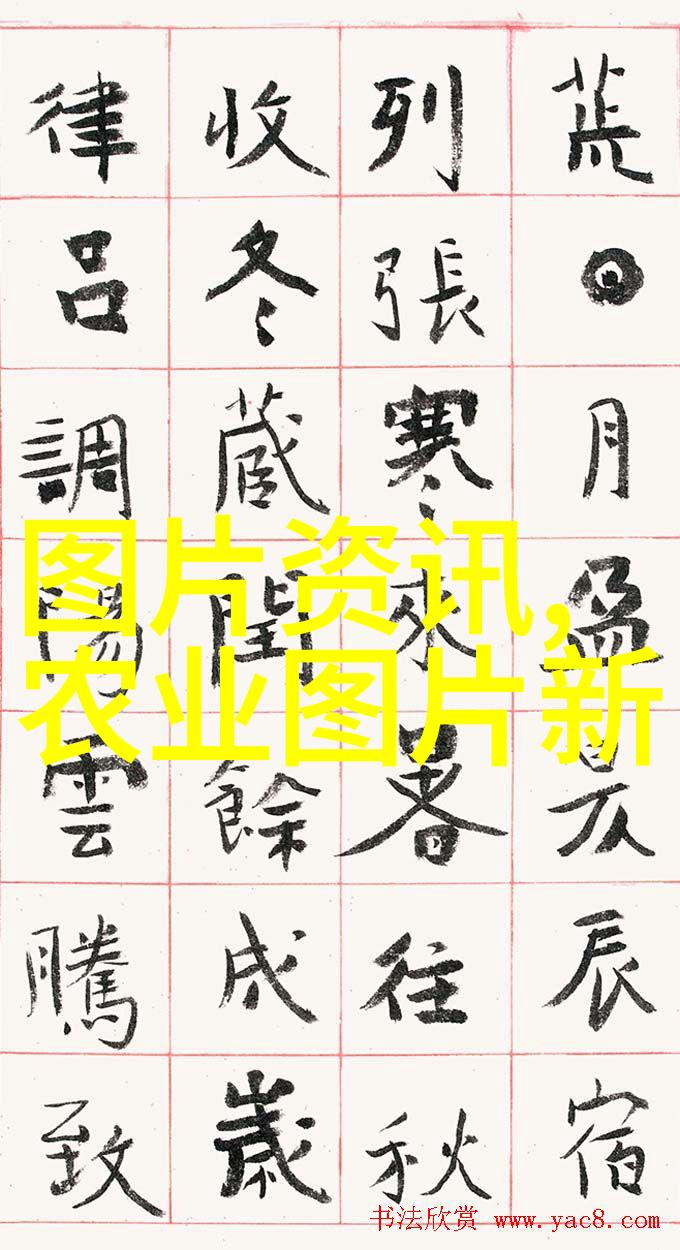 荒日月盈昃辰宿
列張寒來暑往秋
收冬藏閏餘成歲
律呂調陽雲騰致
图片资讯,
农业图片新
书法欣赏 www.yac8.com